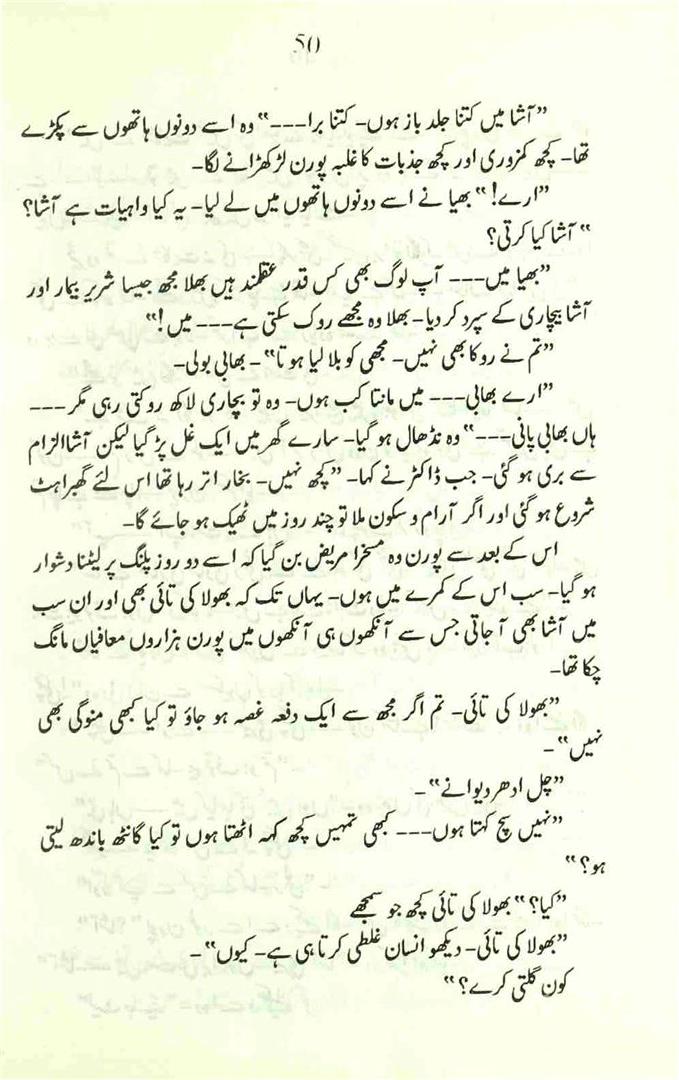 50
”آشا میں کتنا جلد باز ہوں۔ کتنا برا۔۔۔“ وہ اسے دونوں ہاتھوں سے پکڑے
تھا۔ کچھ کمزوری اور کچھ جذبات کا غلبہ پورن لڑکھڑانے لگا۔
”ارے!“ بھیا نے اسے دونوں ہاتھوں میں لے لیا۔ یہ کیا واہیات ہے آشا؟
“ آشا کیا کرتی؟
”بھیا میں۔۔۔ آپ لوگ بھی کس قدر عقلمند ہیں بھلا مجھ جیسا شریر بیمار اور
آشا بیچاری کے سپرد کر دیا۔ بھلا وہ مجھے روک سکتی ہے۔۔۔ میں!“
”تم نے روکا بھی نہیں۔ مجھی کو بلا لیا ہوتا“۔ بھابی بولی۔
”ارے بھابی۔۔۔ میں مانتا کب ہوں۔ وہ تو بچاری لاکھ روکتی رہی مگر۔۔۔
ہاں بھابی پانی۔۔۔“ وہ نڈھال ہو گیا۔ سارے گھر میں ایک غل پڑ گیا لیکن آشا الزام
سے بری ہو گئی۔ جب ڈاکٹر نے کہا۔ ”کچھ نہیں۔ بخار اتر رہا تھا اس لئے گھبراہٹ
شروع ہو گئی اور اگر آرام و سکون ملا تو چند روز میں ٹھیک ہو جائے گا۔
اس کے بعد سے پورن وہ مسخرا مریض بن گیا کہ اسے دو روز پلنگ پر لیٹنا دشوار
ہو گیا۔ سب اس کے کمرے میں ہوں۔ یہاں تک کہ بھولا کی تائی بھی اور ان سب
میں آشا بھی آ جاتی جس سے آنکھوں ہی آنکھوں میں پورن ہزاروں معافیاں مانگ
چکا تھا۔
”بھولا کی تائی۔ تم اگر مجھ سے ایک دفعہ غصہ ہو جاؤ تو کیا کبھی منوگی بھی
نہیں“۔
”چل ادھر دیوانے“۔
”نہیں سچ کہتا ہوں۔۔۔ کبھی تمہیں کچھ کہہ اٹھتا ہوں تو کیا گانٹھ باندھ لیتی
ہو؟“
”کیا؟“ بھولا کی تائی کچھ جو سمجھے
”بھولا کی تائی۔ دیکھو انسان غلطی کرتا ہی ہے۔ کیوں“۔
کون گلتی کرے؟“